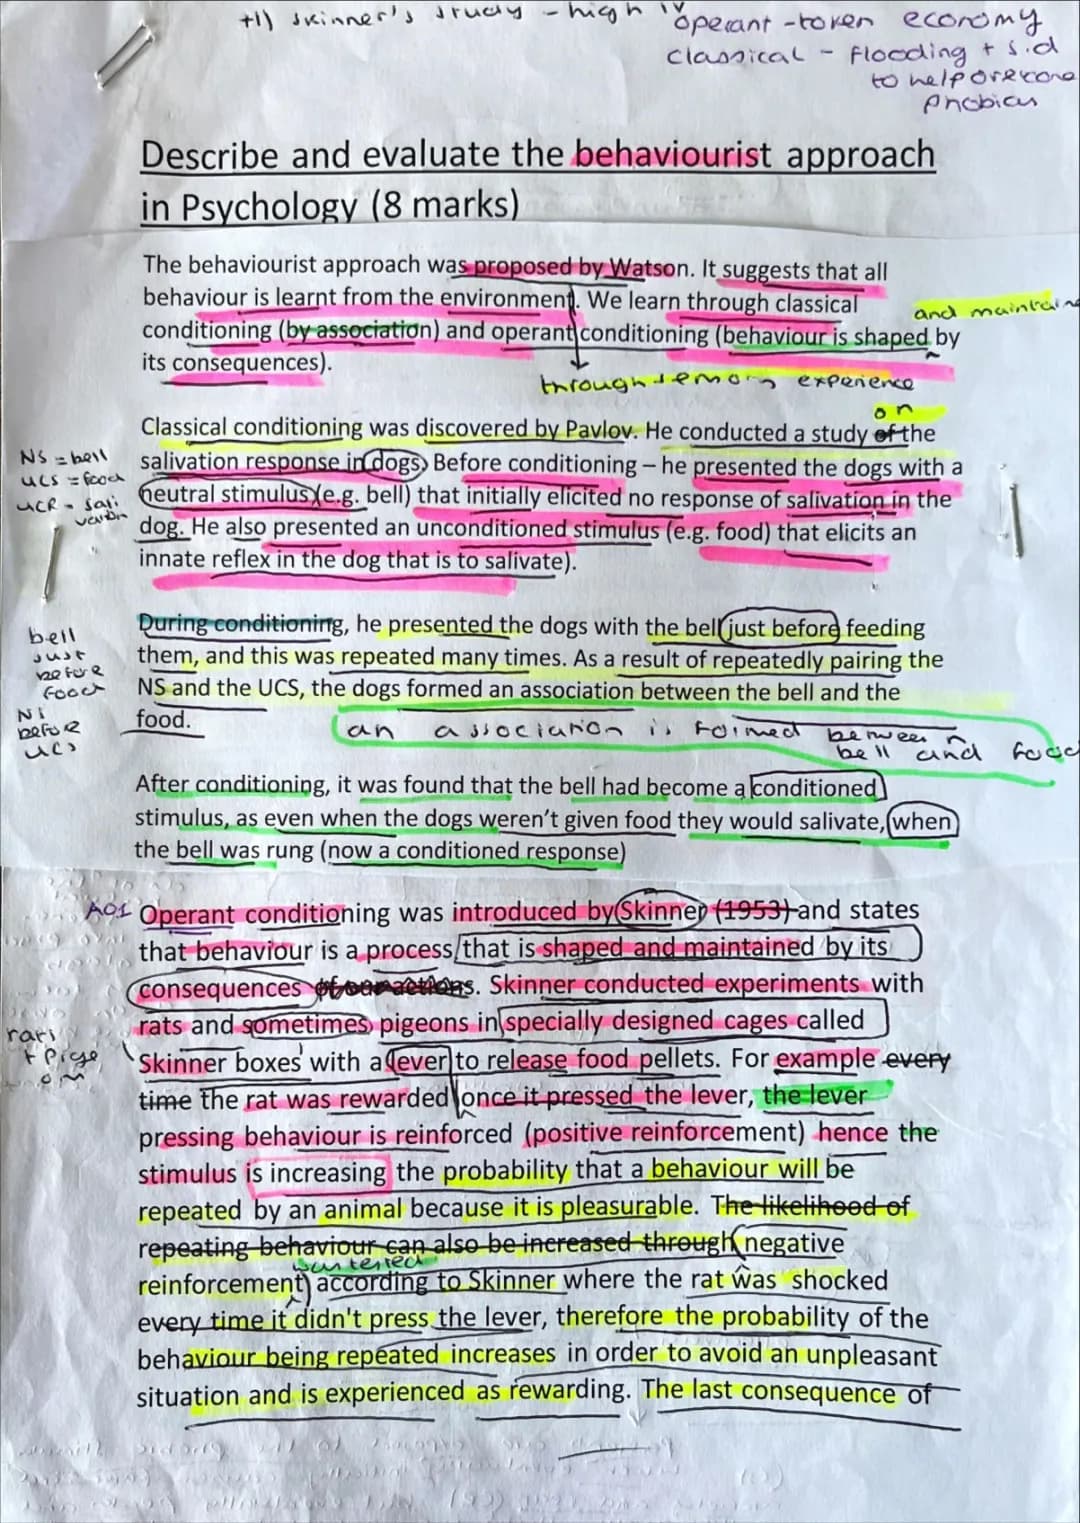 +1) Skinner's study - high IV
operant - token economy
classical - flooding + s.d
to help overcome
phobias
Describe and evaluate the behaviourist approach
in Psychology (8 marks)
The behaviourist approach was proposed by Watson. It suggests that all
behaviour is learnt from the environment. We learn through classical
and maintained
conditioning (by association) and operant conditioning (behaviour is shaped by
its consequences).
through sensory experience
on
Classical conditioning was discovered by Pavlov. He conducted a study of the
NS = bell
salivation response in dogs. Before conditioning – he presented the dogs with a
UCS = food
neutral stimulus (e.g. bell) that initially elicited no response of salivation in the
UCR = salivation
dog. He also presented an unconditioned stimulus (e.g. food) that elicits an
innate reflex in the dog that is to salivate).
During conditioning, he presented the dogs with the bell just before feeding
bell
just
before
food
them, and this was repeated many times. As a result of repeatedly pairing the
NS and the UCS, the dogs formed an association between the bell and the
NS
before
UCS
food.
an association is formed between
bell and food
After conditioning, it was found that the bell had become a conditioned
stimulus, as even when the dogs weren't given food they would salivate, when
the bell was rung (now a conditioned response)
AO1
Operant conditioning was introduced by Skinner (1953) and states
that behaviour is a process that is shaped and maintained by its
consequences of our actions. Skinner conducted experiments with
rats and sometimes pigeons in specially designed cages called
'Skinner boxes' with a lever to release food pellets. For example every
time the rat was rewarded once it pressed the lever, the lever
pressing behaviour is reinforced (positive reinforcement) hence the
stimulus is increasing the probability that a behaviour will be
repeated by an animal because it is pleasurable. The likelihood of
repeating behaviour can also be increased through negative
was tested
reinforcement) according to Skinner where the rat was shocked
every time it didn't press the lever, therefore the probability of the
behaviour being repeated increases in order to avoid an unpleasant
situation and is experienced as rewarding. The last consequence of